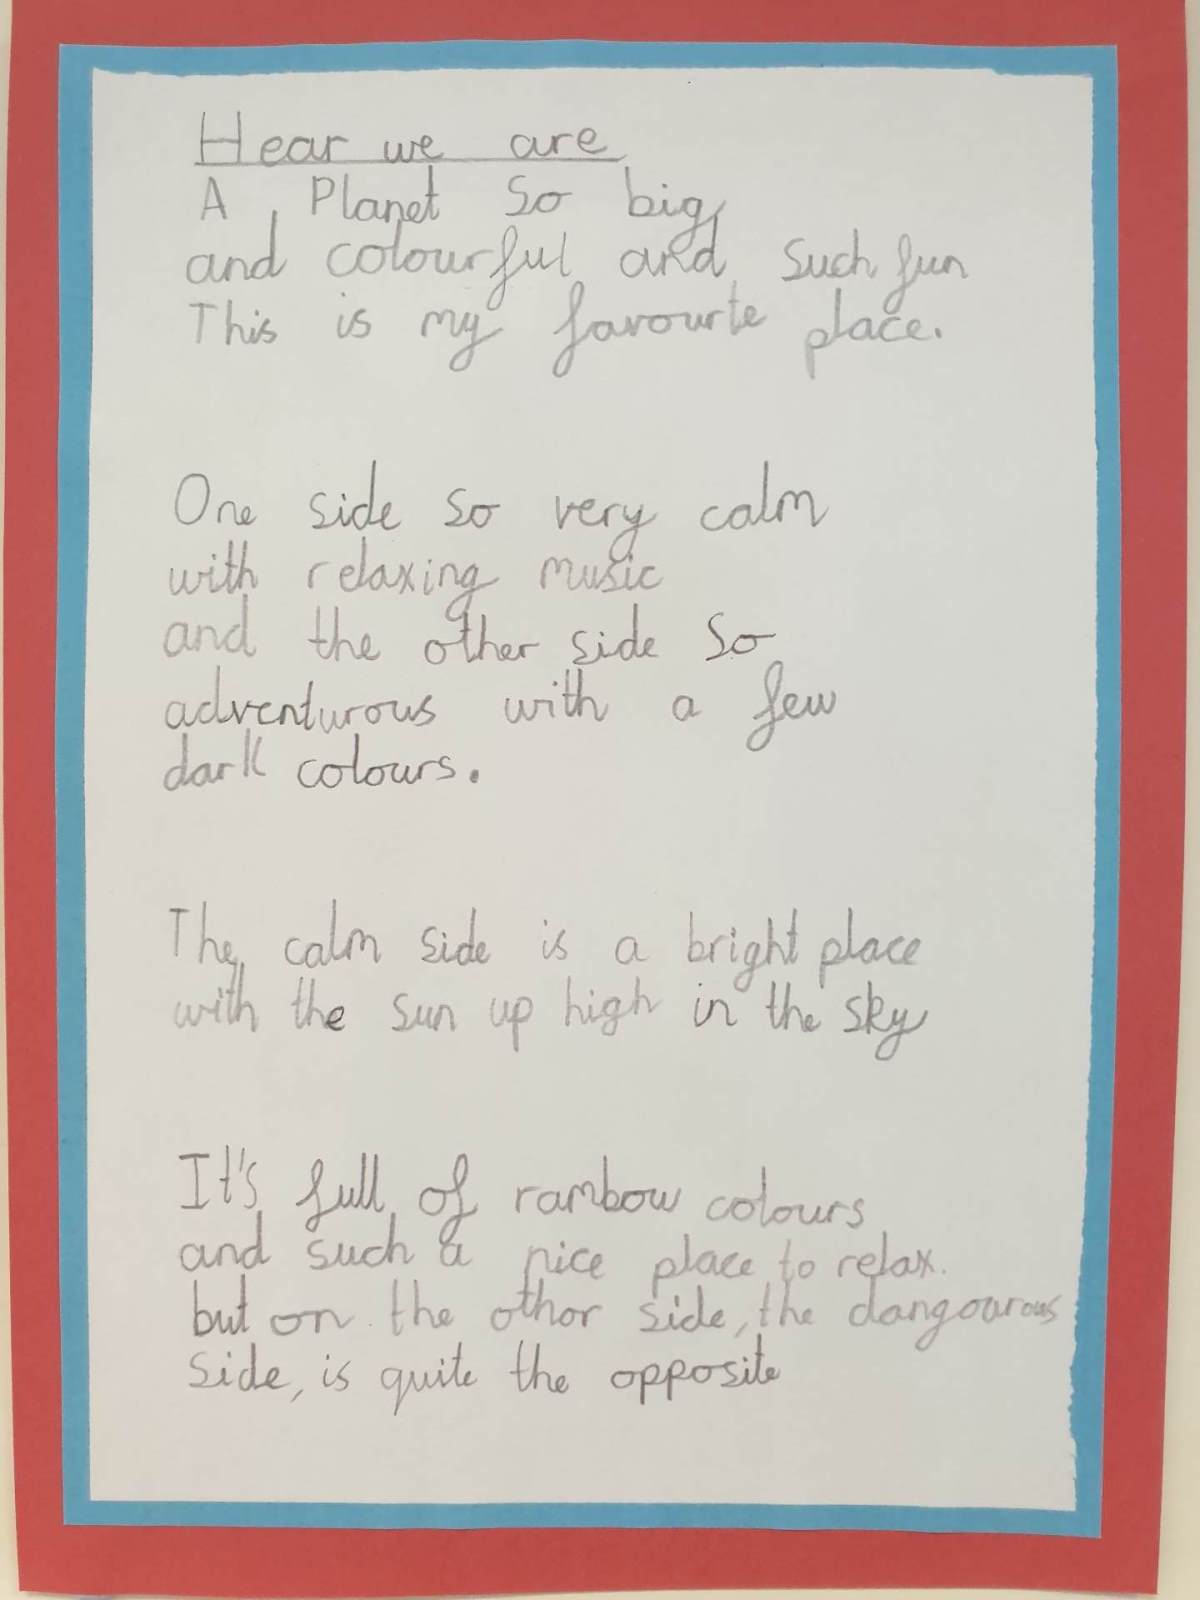 Hear we are
A Planet so big
and colourful and such fun
This is my favourte place.
One side so very calm
with relaxing music
and the other side so
adventurous with a few
dark colours.
The calm side is a bright place
with the sun up high in the sky
It's full of rambow colours
and such a nice place to relax.
but on the othor side, the dangoarous
side, is quite the opposite